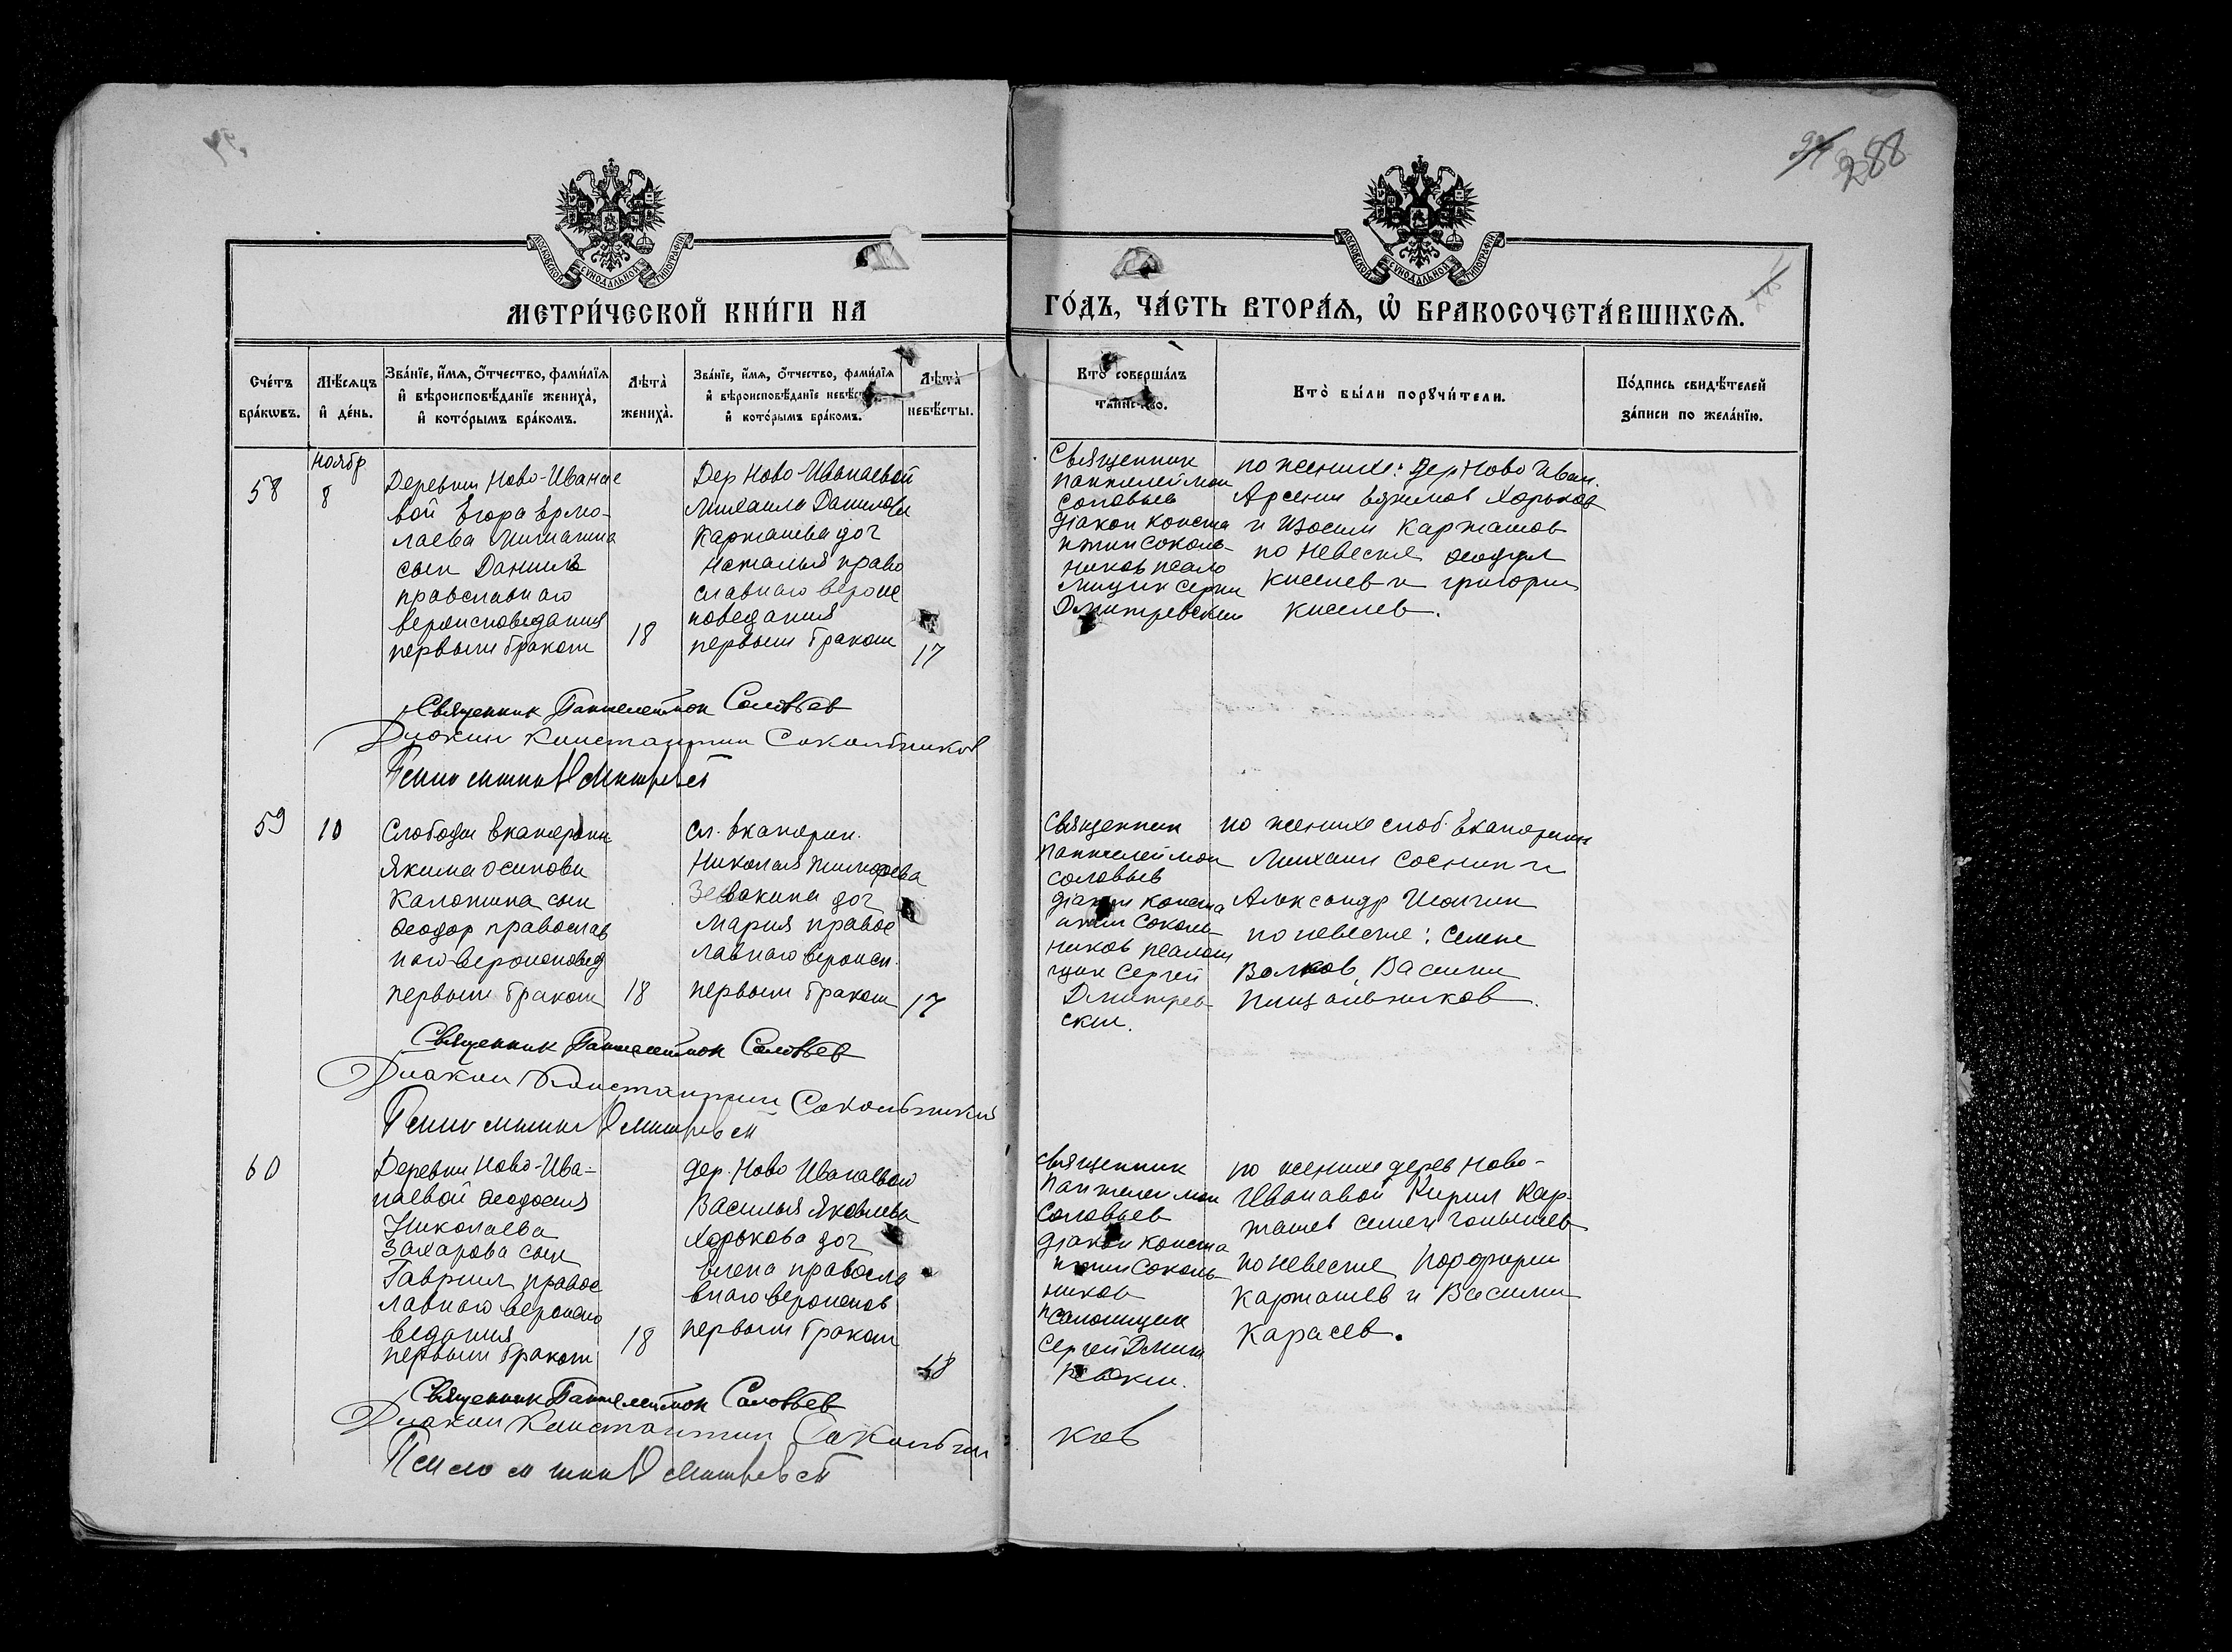 288
МОСКОВСКОЙ СѴНОДАЛЬНОЙ ТИПОГРАФІИ
МОСКОВСКОЙ СѴНОДАЛЬНОЙ ТИПОГРАФІИ
МЕТРИ́ЧЕСКОЙ КНИ́ГИ НА
ГО́ДЪ, ЧА́СТЬ ВТОРА́Ѧ, Ѽ БРАКОСОЧЕТА́ВШИХСѦ.
Сче́тъ бра́кѡвъ.
Мѣ́сяцъ и҆ де́нь.
Зва́нїе, и҆́мѧ, ѻ҆́тчество, фами́лїѧ
и҆ вѣроисповѣ́данїе жениха̀,
и҆ кото́рымъ бра́комъ.
Лѣта̀ жениха̀.
Зва́нїе, и҆́мѧ, ѻ҆́тчество, фами́лїѧ
и҆ вѣроисповѣ́данїе невѣ́сты
и҆ кото́рымъ бра́комъ.
Лѣта̀ невѣ́сты.
Кто̀ соверша́лъ
таинство.
Кто̀ бы́ли порꙋчи́тели.
По́дпись свидѣ́телей
за́писи по жела́нїю.
58
ноябр
8
Деревни Ново-Ивана
вой Егора Ермо-
лаева
сын Даниил
православнаго
вероисповедания
первым браком
18
Дер Ново-Иванаевой
Михаила Данилова
Карташева доч
Наталья право
славнаго вероис
поведания
первым браком
17
Священник
Пантелеймон
Соловьев
діакон Конста
нтин Соколь-
ников псало
мщик Сергий
Дмитревский
по женихе: дер Ново Иван.
Арсений Хорьков
и Изосим Карташов
по невесте Феодул
Киселев и григорий
Киселев.
Священник Пантелеймон Соловьев
Диакон Константин Сокольников
59
10
Слободы Екатерин
Якима Осипова
Калонина сын
Феодор православ
наго вероисповед
первым браком
18
Сл. Екатерин.
Николая Тимофеева
Зевакина доч
Мария правос
лавнаго вероисп.
первым браком
17
Священник
Пантелеймон
Соловьев
діакон Конста
нтин Соколь-
ников псалом
щик Сергей
Дмитрев
ский.
по женихе слоб. Екатерин
Михаил Соснин и
Александр
по невесте: Семен
Волков, Василий
Пищальников.
Священник Пантелеймон Соловьев
Диакон Константин Сокольников
60
Деревни Ново-Ива-
наевой Феодосия
Николаева
Захарова сын
Гавриил правос
лавнаго вероиспо
ведания
первым браком
18
дер. Ново Иванаевой
Василья Яковлева
Хорькова доч
Елена правосла
внаго вероиспов
первым браком
18
Священник
Пантелеймон
Соловьев
діакон Конста
нтин Соколь-
ников
псаломщик
Сергей Дмит
ревский.
по женихе дерев Ново-
Иванавой Кирил Кар-
ташев Семен Голышев
по невесте Порфирий
Карташев и Василий
Карасев.
Священник Пантелеймон Соловьев
Диакон Константин Сокольни
ков